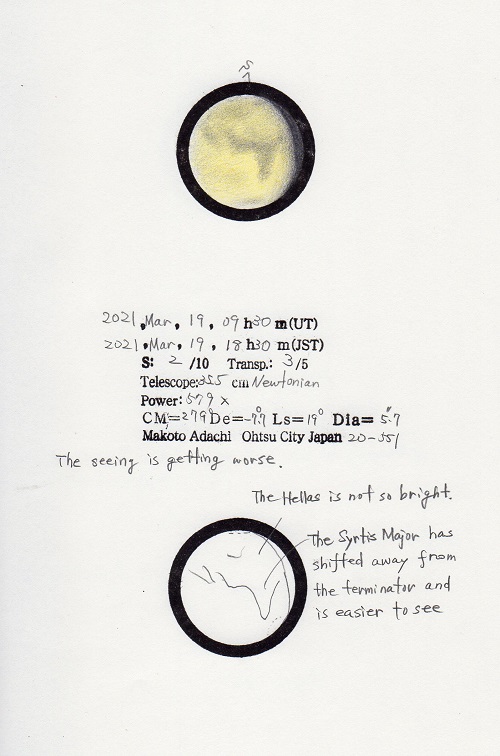 S
2021, Mar, 19, 09 h30 m(UT)
2021, Mar, 19, 18 h30 m(JST)
S: 2 /10 Transp.: 3/5
Telescope:355 cm Newtonian
Power: 579 x
CM=279° De=-7.7° Ls=19° Dia= 5".7
Makoto Adachi Ohtsu City Japan 20-551
The seeing is getting worse.
The Hellas is not so bright.
The Syrtis Major has
shifted away from
the terminator and
is easier to see